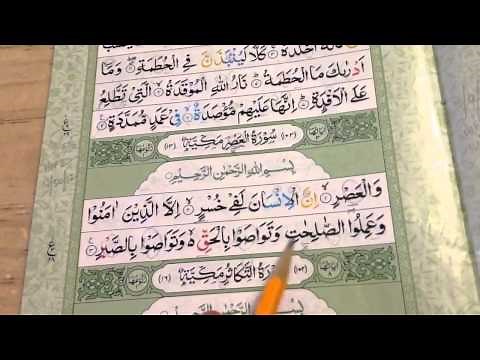 مَالَهٗۤ اَخْلَدَهٗ ۚ كَلَّا لَيُنْۢبَذَنَّ فِي الْحُطَمَةِ ۖ وَمَاۤ
اَدْرٰىكَ مَا الْحُطَمَةُ ؕ نَارُ اللّٰهِ الْمُوْقَدَةُ ۙ الَّتِيْ تَطَّلِعُ
عَلَى الْاَفْـِٕدَةِ ؕ اِنَّهَا عَلَيْهِمْ مُّؤْصَدَةٌ ۙ فِيْ عَمَدٍ مُّمَدَّدَةٍ
(١٠٣) سُوْرَةُ الْعَصْرِ مَكِّيَّةٌ (١٣)
بِسْمِ اللّٰهِ الرَّحْمٰنِ الرَّحِيْمِ
وَالْعَصْرِ ۙ اِنَّ الْاِنْسَانَ لَفِيْ خُسْرٍ ۙ اِلَّا الَّذِيْنَ اٰمَنُوْا
وَعَمِلُوا الصّٰلِحٰتِ وَتَوَاصَوْا بِالْحَقِّ ۙ وَتَوَاصَوْا بِالصَّبْرِ
(١٠٢) سُوْرَةُ التَّكَاثُرِ مَكِّيَّةٌ (١٦)
بِسْمِ اللّٰهِ الرَّحْمٰنِ الرَّحِيْمِ